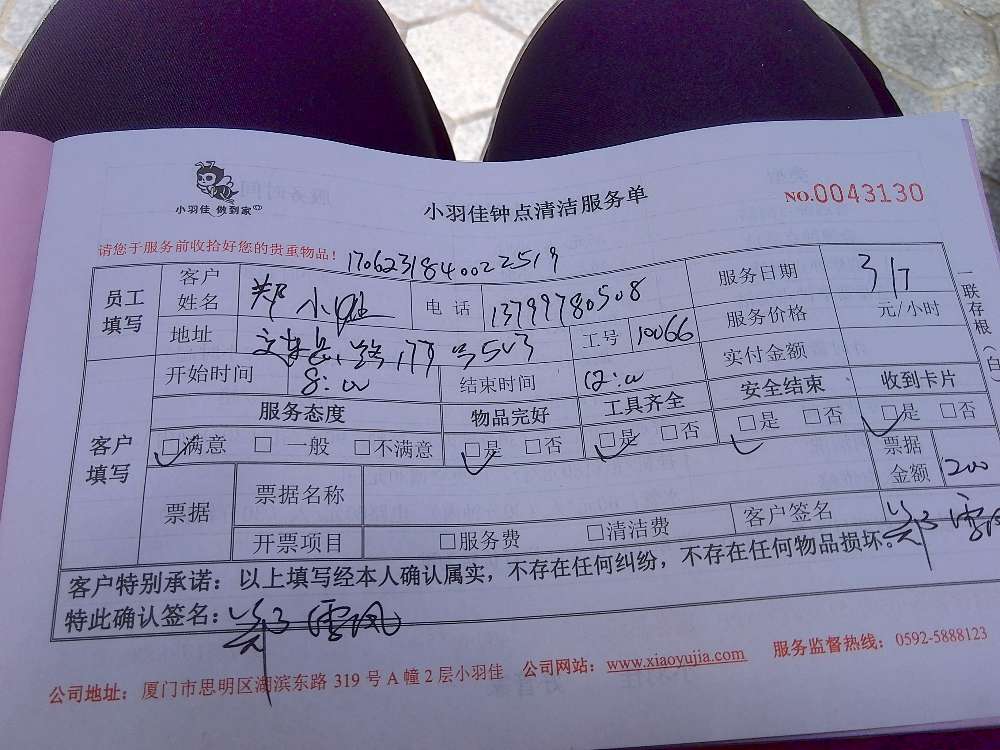 小羽佳 做到家
小羽佳钟点清洁服务单
NO.0043130
请您于服务前收拾好您的贵重物品!
1706231840022519
员工填写
客户姓名 郑小姐 电话 13799780508 服务日期 3/7
地址 路177号503 工号 10066 服务价格 元/小时
开始时间 8:00 结束时间 12:00 实付金额
客户填写
服务态度 物品完好 工具齐全 安全结束 收到卡片
□满意 □一般 □不满意 □是 □否 □是 □否 □是 □否 □是 □否
票据 票据名称 票据金额 200
开票项目 □服务费 □清洁费 客户签名
客户特别承诺:以上填写经本人确认属实,不存在任何纠纷,不存在任何物品损坏。
特此确认签名:
公司地址:厦门市思明区湖滨东路319号A幢2层小羽佳 公司网站:www.xiaoyujia.com 服务监督热线:0592-5888123
一联存根(白